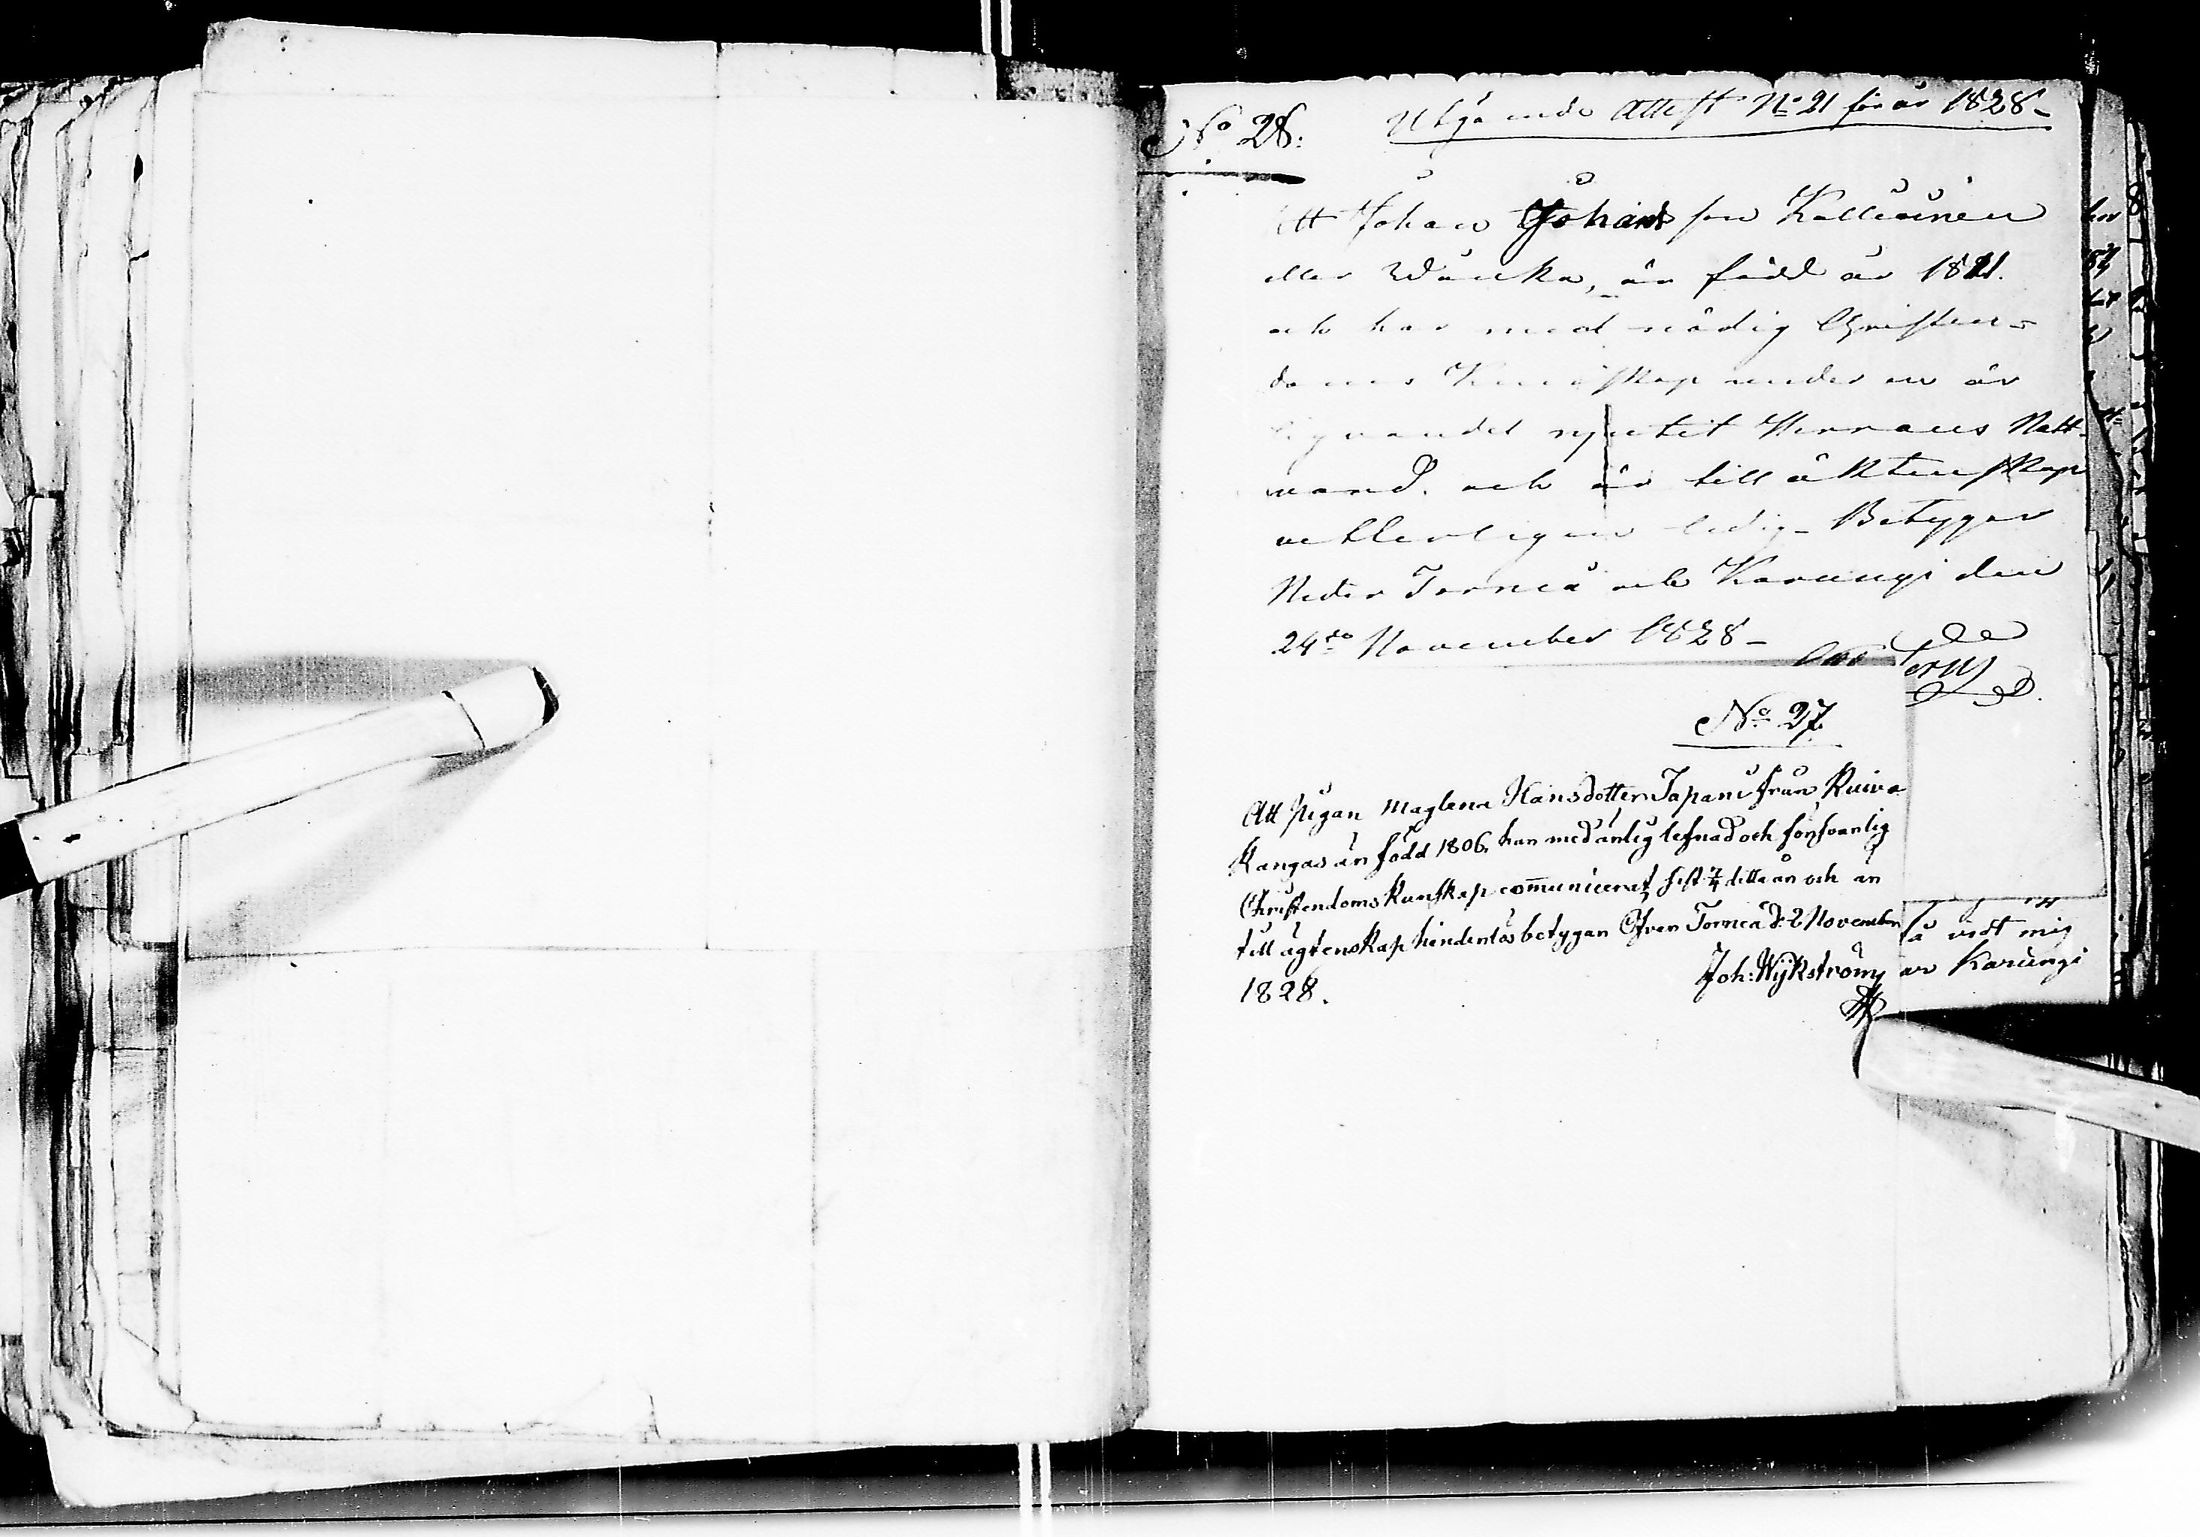 No 28.
Utgående Attest No 21 för år 1828-
Att Johan Johans son Kallioinen
eller är född år 1821.
och har med nödig Christen-
doms Kunskap under en är
njutit Herrans Natt-
vard. och är till äktenskap
vetterligen ledig- Betygar
Neder Torneå och Karungi den
24de November 1828-
No 27
Att Pigan Maglena Hansdotter Japani från Kuiva
Kangas är född 1806, har med ärlig lefnad och försvarlig
Christendoms Kunskap communicerat sist detta år och är
till ägtenskap hinderlös betygar Öfver Torneå d: 2 November
1828.
Joh: Wykström
å vist mig
ar Karungi